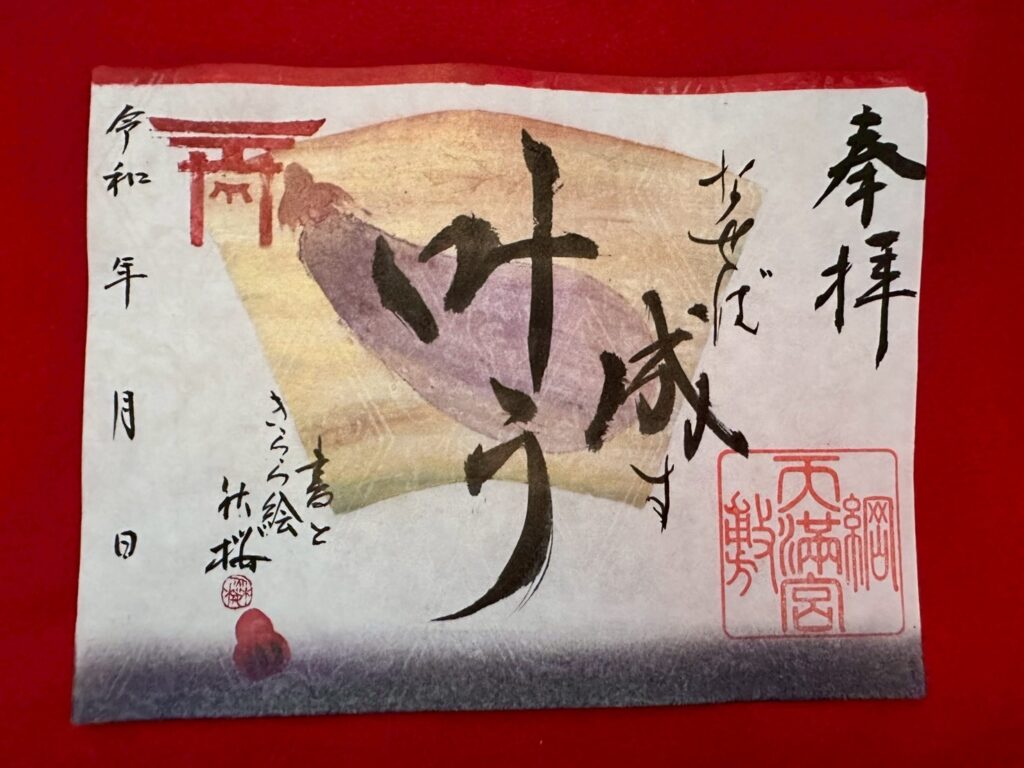 奉拝
綱
天満宮
敷
なせば成す
叶う
書と
きらら絵
秋桜
令和 年 月 日